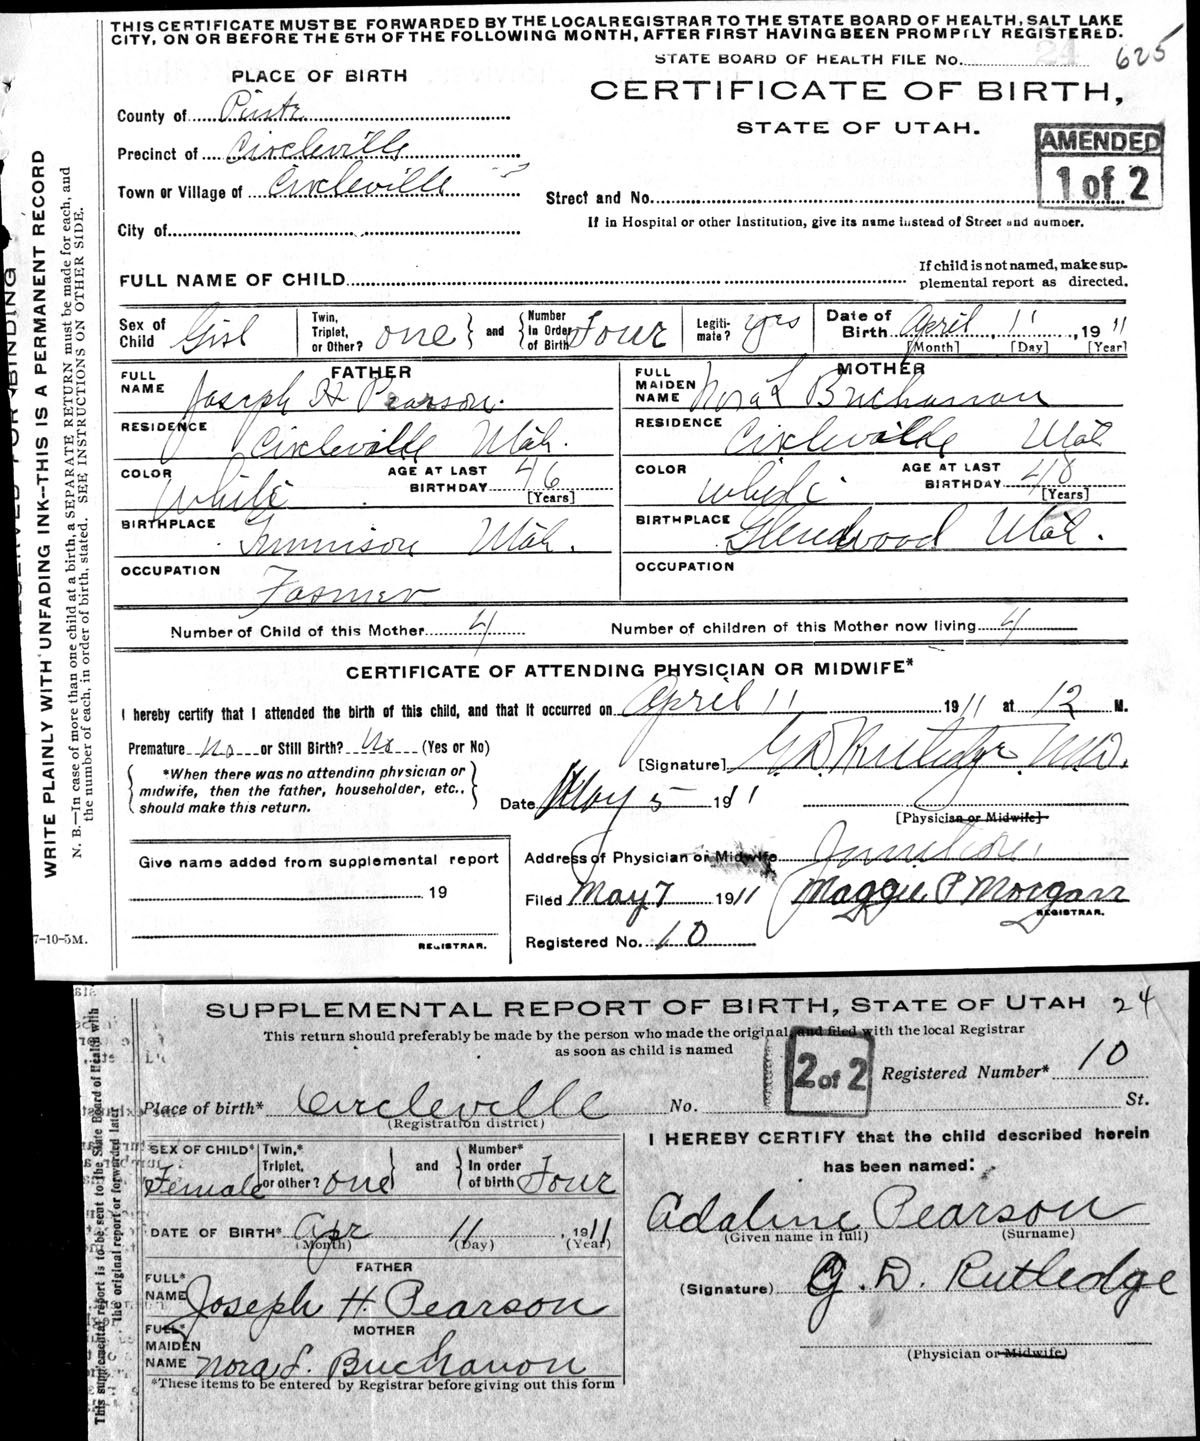 THIS CERTIFICATE MUST BE FORWARDED BY THE LOCAL REGISTRAR TO THE STATE BOARD OF HEALTH, SALT LAKE
CITY, ON OR BEFORE THE 5TH OF THE FOLLOWING MONTH, AFTER FIRST HAVING BEEN PROMPTLY REGISTERED.
STATE BOARD OF HEALTH FILE No. 24 625
PLACE OF BIRTH
CERTIFICATE OF BIRTH,
STATE OF UTAH.
AMENDED
1 of 2
County of Piute
Precinct of Circleville
Town or Village of Circleville
Street and No.
If in Hospital or other Institution, give its name instead of Street and number.
City of
FULL NAME OF CHILD
If child is not named, make sup-
plemental report as directed.
Sex of Child Girl
Twin, Triplet, or Other? one and Number In Order of Birth Four
Legiti-mate? yes
Date of Birth April 11, 1911
[Month] [Day] [Year]
FATHER
FULL NAME Joseph H Pearson.
RESIDENCE Circleville Utah.
COLOR White AGE AT LAST BIRTHDAY 46 [Years]
BIRTHPLACE Gunnison Utah.
OCCUPATION Farmer
MOTHER
FULL MAIDEN NAME Nora L Buchanan
RESIDENCE Circleville Utah
COLOR White AGE AT LAST BIRTHDAY 40 [Years]
BIRTHPLACE Glendwood Utah.
OCCUPATION
Number of Child of this Mother 4 Number of children of this Mother now living 4
CERTIFICATE OF ATTENDING PHYSICIAN OR MIDWIFE*
I hereby certify that I attended the birth of this child, and that it occurred on April 11 1911 at 12 M.
Premature no or Still Birth? No (Yes or No)
*When there was no attending physician or
midwife, then the father, householder, etc.,
should make this return.
[Signature] G. D. Rutledge M.D.
Date May 5 1911
[Physician or Midwife]
Give name added from supplemental report
19
REGISTRAR.
Address of Physician or Midwife Junction.
Filed May 7 1911 Maggie P Morgan
REGISTRAR.
Registered No. 10
7-10-5M.
RESERVED FOR BINDING
WRITE PLAINLY WITH UNFADING INK—THIS IS A PERMANENT RECORD
N. B.—In case of more than one child at a birth, a SEPARATE RETURN must be made for each, and
the number of each, in order of birth, stated. SEE INSTRUCTIONS ON OTHER SIDE.
SUPPLEMENTAL REPORT OF BIRTH, STATE OF UTAH 24
This return should preferably be made by the person who made the original and filed with the local Registrar
as soon as child is named
2 of 2
Registered Number* 10
Place of birth* Circleville No. St.
(Registration district)
SEX OF CHILD* Female
Twin,* Triplet, or other? one and Number* In order of birth Four
DATE OF BIRTH* Apr 11, 1911
(Month) (Day) (Year)
FATHER
FULL* NAME Joseph H. Pearson
MOTHER
FULL* MAIDEN NAME Nora L. Buchanon
*These items to be entered by Registrar before giving out this form
I HEREBY CERTIFY that the child described herein
has been named:
Adaline Pearson
(Given name in full) (Surname)
(Signature) G. D. Rutledge
(Physician or Midwife)
This supplemental report is to be sent to the State Board of Health with
the original report or forwarded later